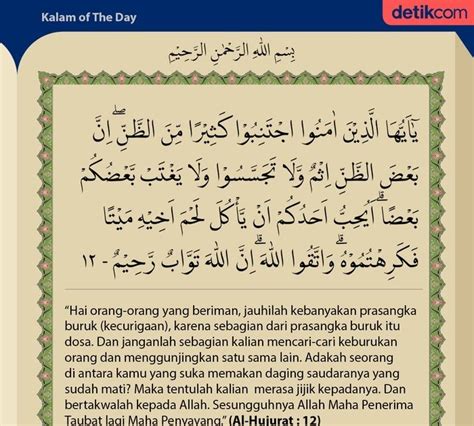 Kalam of The Day
detikcom
بِسْمِ اللهِ الرَّحْمٰنِ الرَّحِيْمِ
يٰٓاَيُّهَا الَّذِيْنَ اٰمَنُوا اجْتَنِبُوْا كَثِيْرًا مِّنَ الظَّنِّۖ اِنَّ
بَعْضَ الظَّنِّ اِثْمٌ وَّلَا تَجَسَّسُوْا وَلَا يَغْتَبْ بَّعْضُكُمْ
بَعْضًاۗ اَيُحِبُّ اَحَدُكُمْ اَنْ يَّأْكُلَ لَحْمَ اَخِيْهِ مَيْتًا
فَكَرِهْتُمُوْهُۗ وَاتَّقُوا اللهَ ۗاِنَّ اللهَ تَوَّابٌ رَّحِيْمٌ - ١٢
“Hai orang-orang yang beriman, jauhilah kebanyakan prasangka
buruk (kecurigaan), karena sebagian dari prasangka buruk itu
dosa. Dan janganlah sebagian kalian mencari-cari keburukan
orang dan menggunjingkan satu sama lain. Adakah seorang
di antara kamu yang suka memakan daging saudaranya yang
sudah mati? Maka tentulah kalian merasa jijik kepadanya. Dan
bertakwalah kepada Allah. Sesungguhnya Allah Maha Penerima
Taubat lagi Maha Penyayang.” (Al-Hujurat : 12)